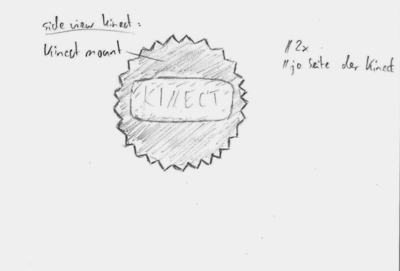 side view kinect:
Kinect mount
KINECT
// 2x
// je Seite der Kinect